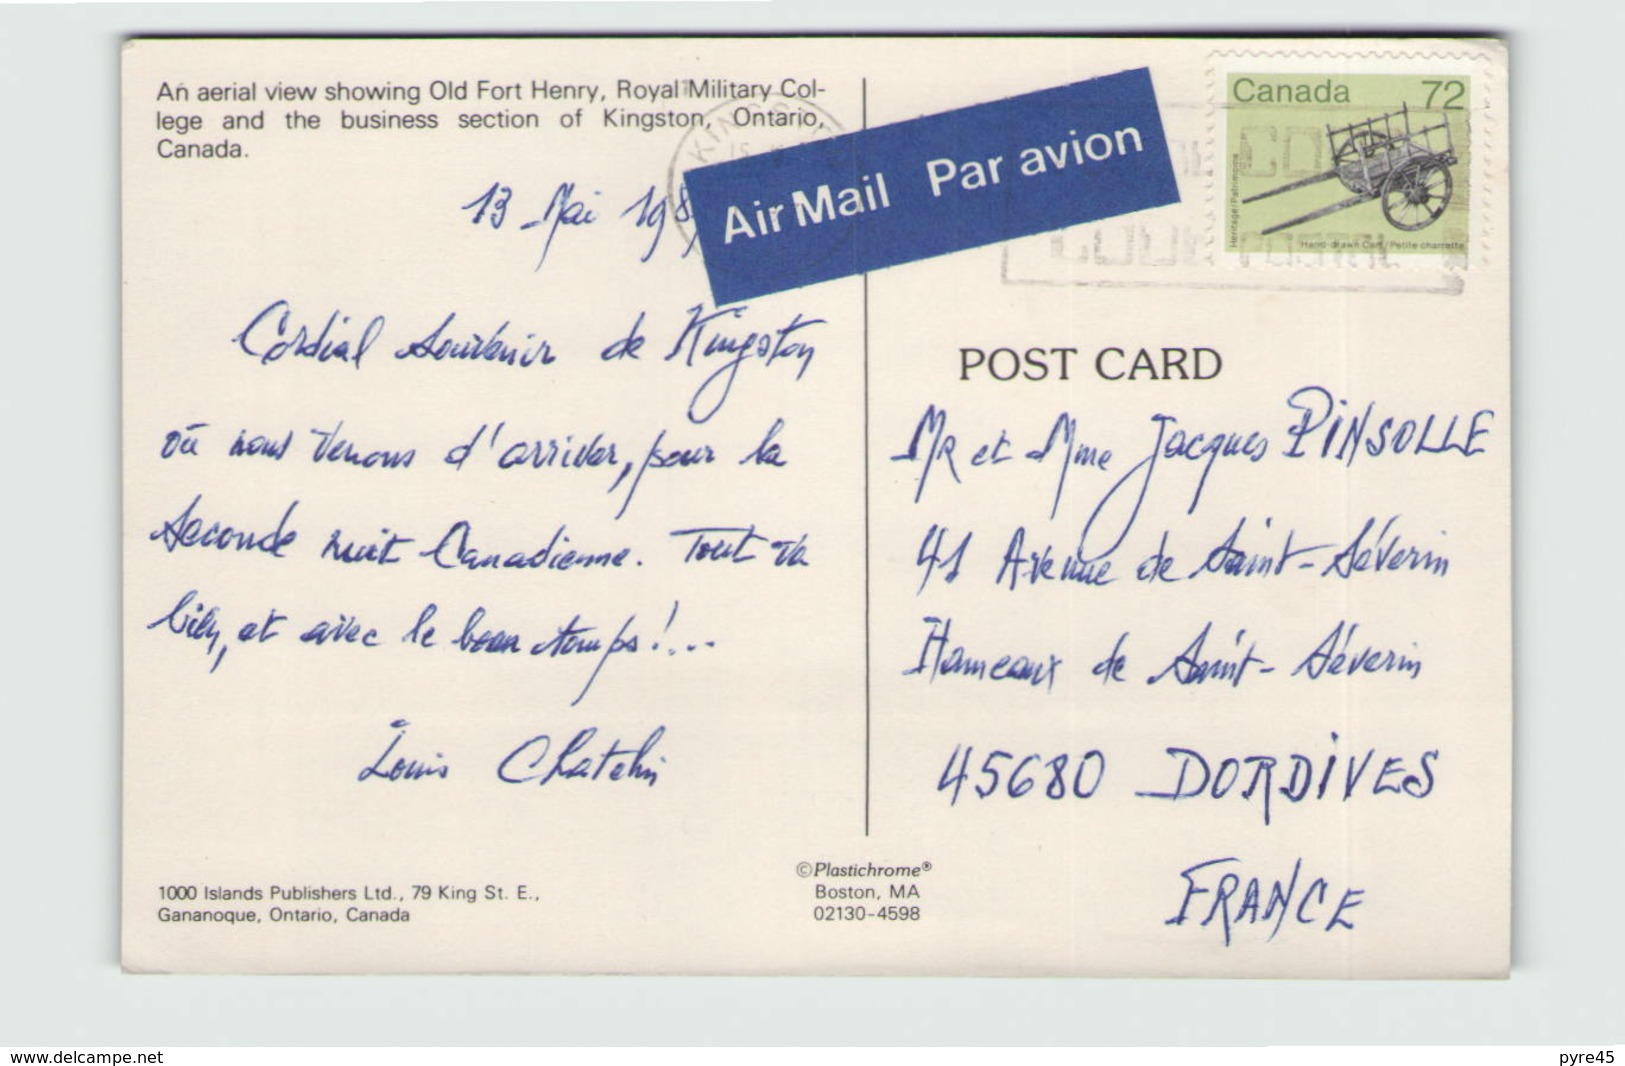 An aerial view showing Old Fort Henry, Royal Military Col-
lege and the business section of Kingston, Ontario,
Canada.
13 Mai 198
Cordial souvenir de Kingston
où nous venons d'arriver, pour la
seconde nuit Canadienne. Tout va
bien, et avec le beau temps!...
Louis Chatelin
1000 Islands Publishers Ltd., 79 King St. E.,
Gananoque, Ontario, Canada
©Plastichrome®
Boston, MA
02130-4598
Air Mail Par avion
Canada 72
Heritage/Patrimoine
Hand-drawn Cart/Petite charrette
POST CARD
MR et Mme Jacques PINSOLLE
41 Avenue de Saint-Séverin
Hameaux de Saint-Séverin
45680 DORDIVES
FRANCE
www.delcampe.net
pyre45